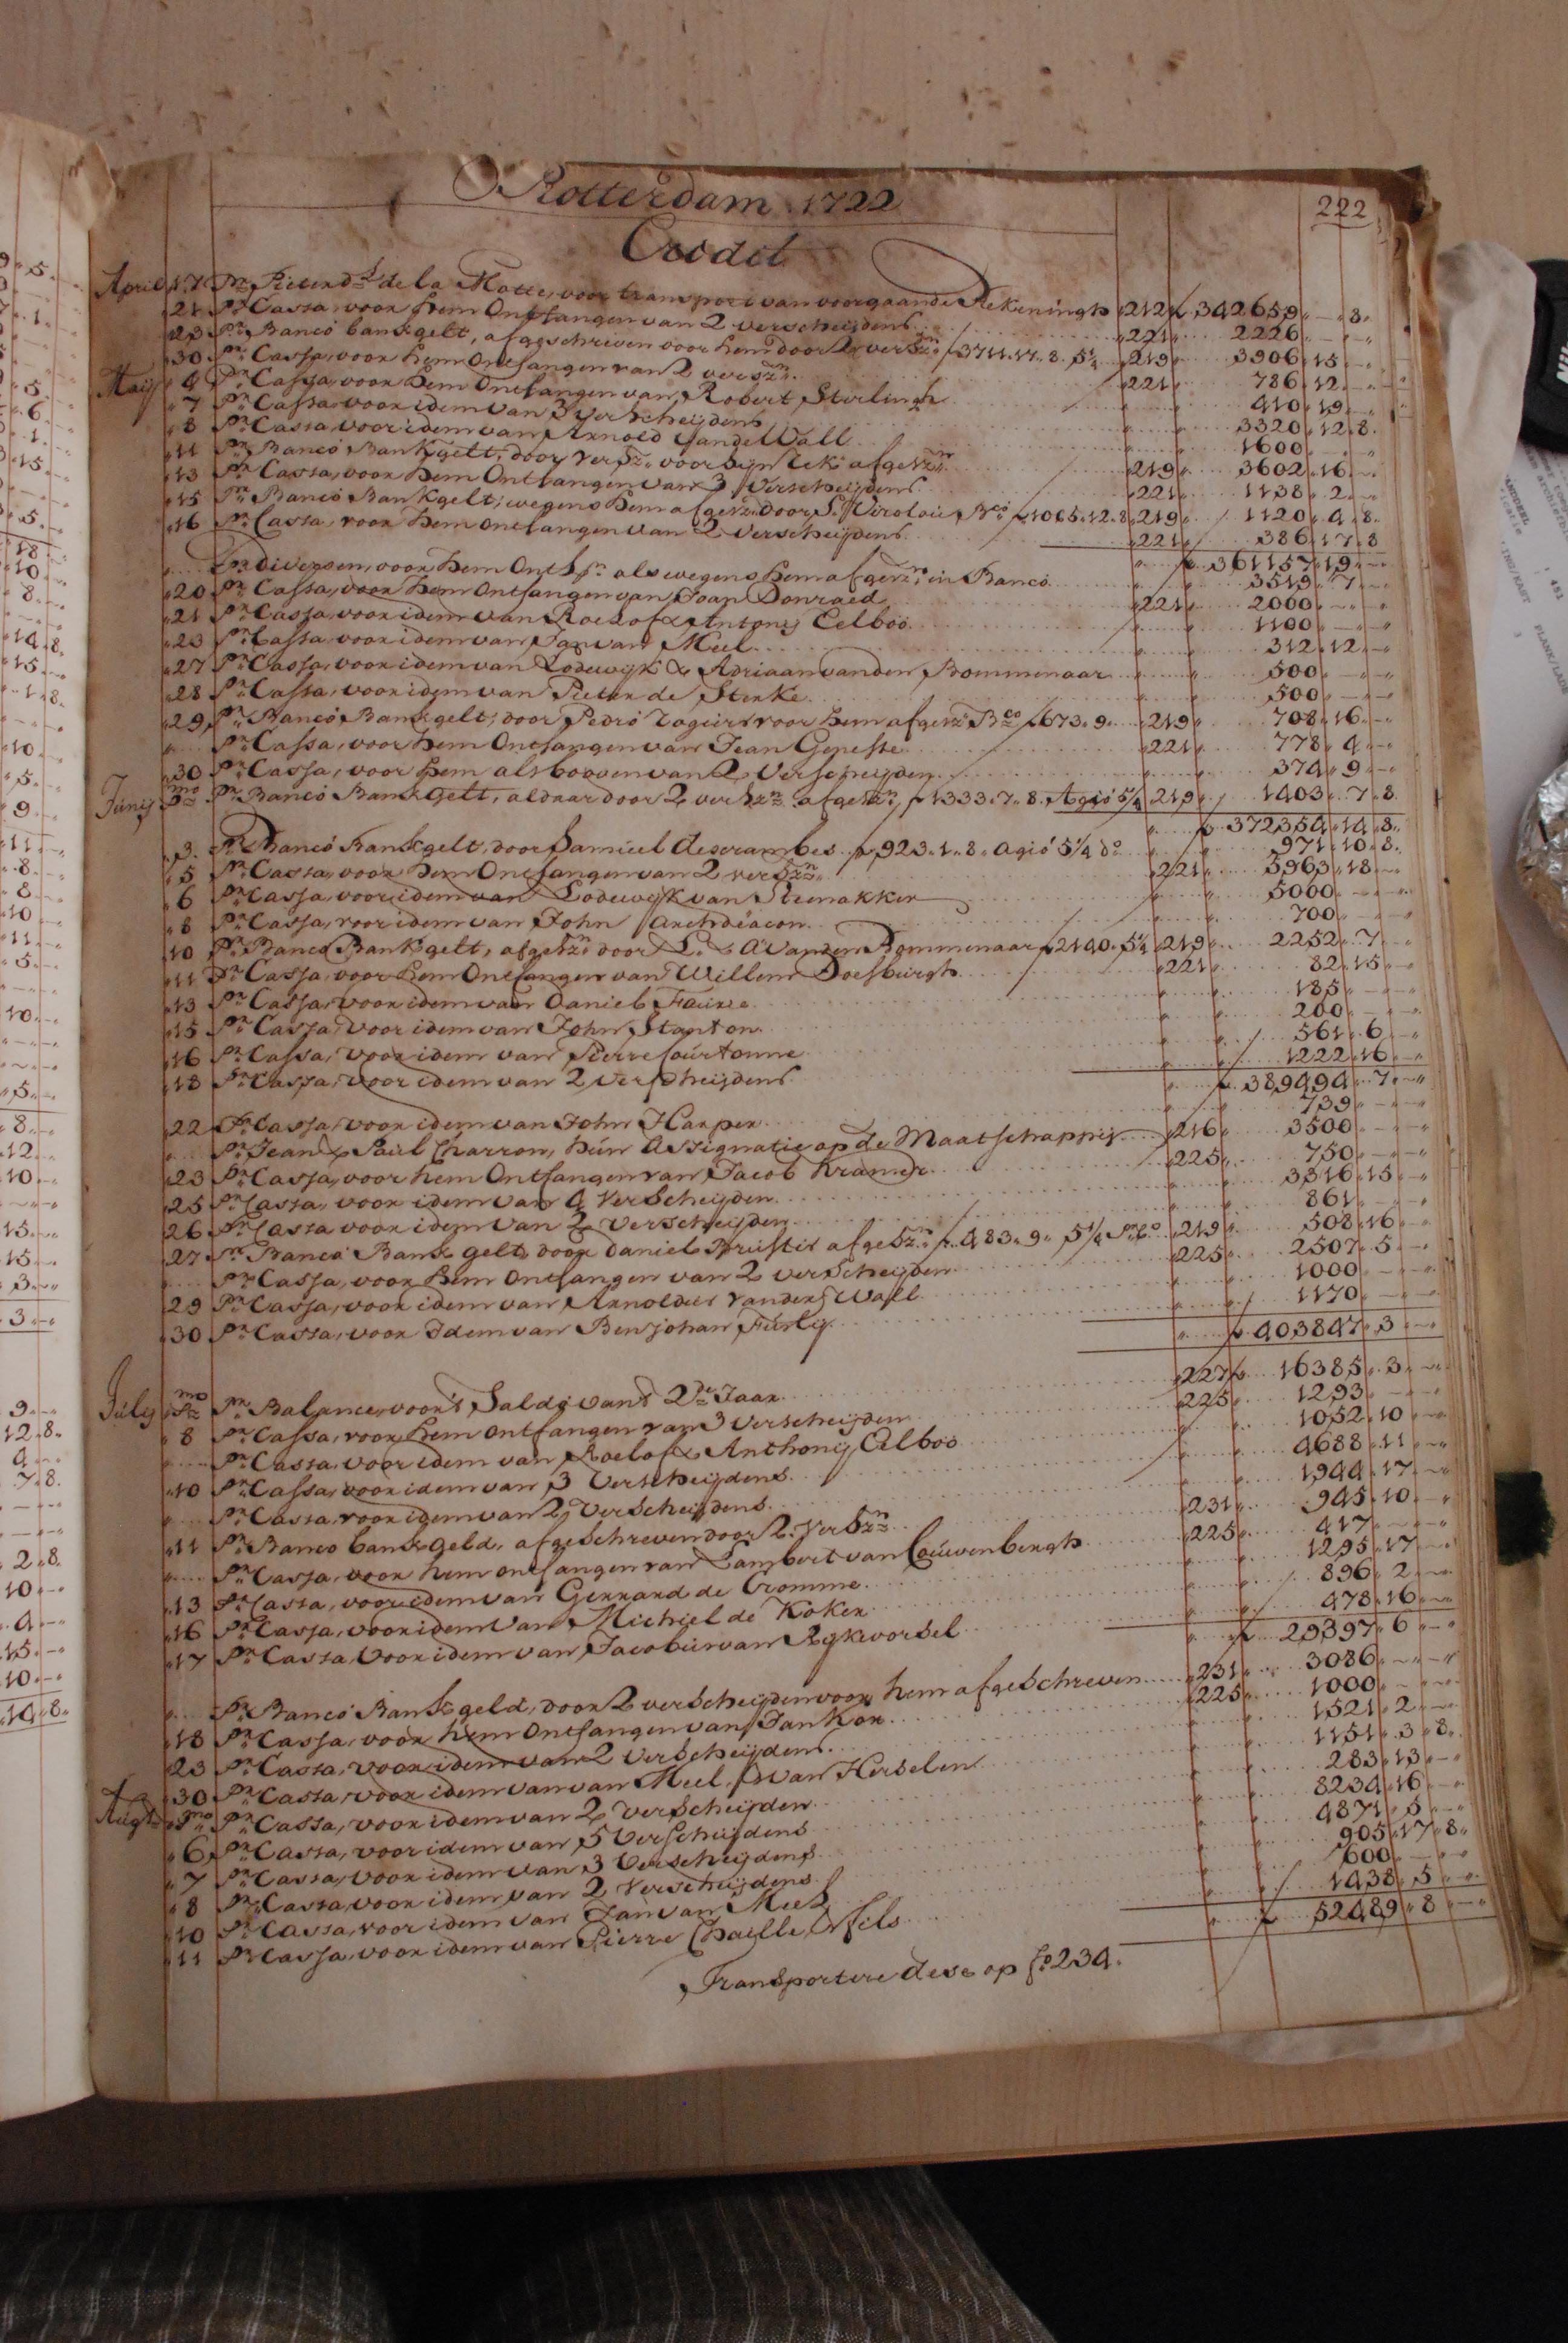 Rotterdam 1722
222
Credit
April 17 Pr. Pieter de la Motte, voor transport van voorgaande Rekeningh 212 f 342659 „ — „ 8 „
21 Pr. Cassa, voor hem Ontfangen van 2 verscheijdens 221 2226 „ — „ —
23 Pr. Banco bankgelt, afgeschreven voor hem door 2 versz. f 3711.17.8. 5¼ 219 3906 „ 15 „ —
30 Pr. Cassa, voor hem Ontfangen van 2 versz. 221 786 „ 12 „ —
Maij 4 Pr. Cassa, voor hem Ontfangen van Robert Sterlinch 410 „ 19 „ —
7 Pr. Cassa, voor idem van 3 verscheijdens 3320 „ 12 „ 8
8 Pr. Cassa, voor idem van Arnold Vandel Wall 1600 „ — „ —
11 Pr. Banco Bankgelt, door versz. voor sijn Rek. afgesz. 219 3602 „ 16 „ —
13 Pr. Cassa, voor hem Ontfangen van 3 Verscheijdens 221 1138 „ 2 „ —
15 Pr. Banco Bankgelt, wegens hem afgesz. door S. Virolau Bco f 1065.12.8 219 1120 „ 4 „ 8
16 Pr. Cassa, voor hem ontfangen van 2 Verscheijdens 221 386 „ 17 „ 8
f 361157 „ 19 „ —
Pr. diversen, voor hem Ontf. als wegens hem afgesz. in Banco 3519 „ 7 „ —
20 Pr. Cassa, voor hem Ontfangen van Joan Donraed 221 2000 „ — „ —
21 Pr. Cassa, voor idem van Roelof & Antonij Eelboo 1100 „ — „ —
23 Pr. Cassa, voor idem van Jan van Meel 312 „ 12 „ —
27 Pr. Cassa, voor idem van Lodewijk & Adriaan vanden Bommenaar 500 „ — „ —
28 Pr. Cassa, voor idem van Pieter de Sterke 500 „ — „ —
29 Pr. Banco Bankgelt, door Pedro Zagurr voor hem afgesz. Bco f 673.9. 219 708 „ 16 „ —
Pr. Cassa, voor hem Ontfangen van Jean Geneste 221 778 „ 4 „ —
30 Pr. Cassa, voor hem als booven van 2 Verscheijden 374 „ 9 „ —
Junij pmo Pr. Banco Bankgelt, aldaar door 2 versz. afgesz. f 1333.7.8. Agio 5¼ 219 1403 „ 7 „ 8
f 372354 „ 14 „ 8
3 Pr. Banco Bankgelt, door Samuel Descrambes f 923.1.8. agio 5¼ do 971 „ 10 „ 8
5 Pr. Cassa, voor hem Ontfangen van 2 versz. 221 3963 „ 18 „ —
6 Pr. Cassa, voor idem van Lodewijk van Steenakker 5000 „ — „ —
8 Pr. Cassa, voor idem van John Archdeacon 700 „ — „ —
10 Pr. Banco Bankgelt, afgesz. door L. & A. Vanden Bommenaar f 2140. 5¼ 219 2252 „ 7 „ —
11 Pr. Cassa, voor hem Ontfangen van Willem Doesburgh 221 82 „ 15 „ —
13 Pr. Cassa, voor idem van Daniel Faure 185 „ — „ —
15 Pr. Cassa, voor idem van John Stanton 200 „ — „ —
16 Pr. Cassa, voor idem van Pierre Courtonne 561 „ 6 „ —
18 Pr. Cassa, voor idem van 2 Verscheijdens 1222 „ 16 „ —
f 389494 „ 7 „ —
22 Pr. Cassa, voor idem van John Harper 739 „ — „ —
Pr. Jean & Paul Charron, hun Assignatie op de Maatschappij 216 3500 „ — „ —
23 Pr. Cassa, voor hem Ontfangen van Jacob Kramer 225 750 „ — „ —
25 Pr. Cassa, voor idem van 4 Verscheijden 3316 „ 15 „ —
26 Pr. Cassa voor idem van 2 verscheijden 861 „ — „ —
27 Pr. Banco Bankgelt, door Daniel Brustis afgesz. f 483.9. 5¼ PrCo 219 508 „ 16 „ —
Pr. Cassa, voor hem Ontfangen van 2 verscheijden 225 2507 „ 5 „ —
29 Pr. Cassa, voor idem van Arnoldus vander Wall 1000 „ — „ —
30 Pr. Cassa, voor Idem van Benjohan Furly 1170 „ — „ —
f 403847 „ 3 „ —
July pmo Pr. Balance, voor 't Saldo van 't 2de Jaar 227 f 16385 „ 3 „ —
8 Pr. Cassa, voor hem ontfangen van 3 verscheijden 225 1293 „ — „ —
Pr. Cassa, voor idem van Roelof & Anthonij Elboo 1052 „ 10 „ —
10 Pr. Cassa, voor idem van 3 Verscheijdens 4688 „ 11 „ —
Pr. Cassa, voor idem van 2 Verscheijdens 1944 „ 17 „ —
11 Pr. Banco bankgeld, afgeschreven door 2 Versz. 231 945 „ 10 „ —
Pr. Cassa, voor hem ontfangen van Lambert van Couwenbergh 225 417 „ — „ —
13 Pr. Cassa, voor idem van Gerrard de Cromme 1295 „ 17 „ —
16 Pr. Cassa, voor idem van Michiel de Koker 896 „ 2 „ —
17 Pr. Cassa, voor idem van Jacobus van Rykevorsel 478 „ 16 „ —
f 29397 „ 6 „ —
Pr. Banco Bankgeld, door 2 verscheijden voor hem afgeschreven 231 3086 „ — „ —
18 Pr. Cassa, voor hem Ontfangen van Jan Kor 225 1000 „ — „ —
23 Pr. Cassa, voor idem van 2 Verscheijdens 1521 „ 2 „ —
30 Pr. Cassa, voor idem van van Meel, & van Herselen 1151 „ 3 „ 8
Augt. pmo Pr. Cassa, voor idem van 2 verscheijden 283 „ 13 „ —
6 Pr. Cassa, voor idem van 5 Verscheijdens 8234 „ 16 „ —
7 Pr. Cassa, voor idem van 3 Verscheijdens 4871 „ 5 „ —
8 Pr. Cassa, voor idem van 2 Verscheijdens 905 „ 17 „ 8
10 Pr. Cassa, voor idem van Jan van Meel 600 „ — „ —
11 Pr. Cassa, voor idem van Pierre Chaille & fils 1438 „ 5 „ —
f 52489 „ 8 „ —
Transportere dese op fo 234.